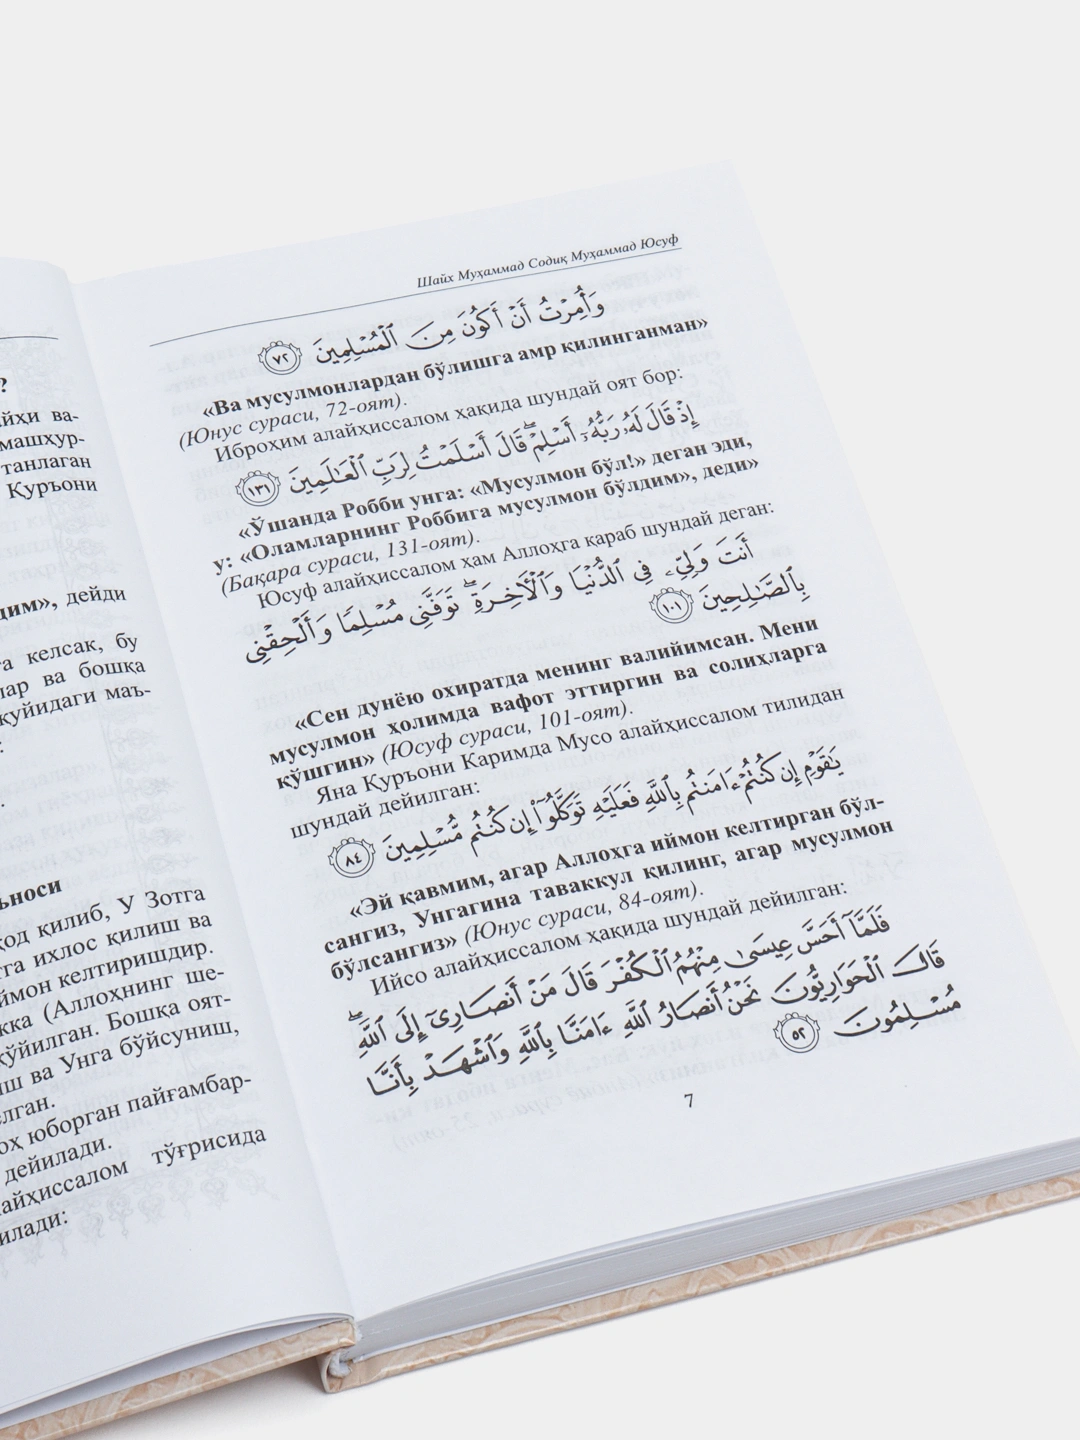 ?
айҳи ва-
машҳур-
танлаган
Қуръони
дим», дейди
а келсак, бу
лар ва бошқа
қуйидаги маъ-
:
ъноси
ҳод қилиб, У Зотга
тга ихлос қилиш ва
ймон келтиришдир.
жка (Аллоҳнинг ше-
қўйилган. Бошқа оят-
иш ва Унга бўйсуниш,
елган.
оҳ юборган пайғамбар-
дейилади.
лайҳиссалом тўғрисида
илади:
Шайх Муҳаммад Содиқ Муҳаммад Юсуф
وَأُمِرْتُ أَنْ أَكُونَ مِنَ ٱلْمُسْلِمِينَ ٧٢
«Ва мусулмонлардан бўлишга амр қилинганман»
(Юнус сураси, 72-оят).
Иброҳим алайҳиссалом ҳақида шундай оят бор:
إِذْ قَالَ لَهُۥ رَبُّهُۥٓ أَسْلِمْ ۖ قَالَ أَسْلَمْتُ لِرَبِّ ٱلْعَـٰلَمِينَ ١٣١
«Ўшанда Робби унга: «Мусулмон бўл!» деган эди,
у: «Оламларнинг Роббига мусулмон бўлдим», деди»
(Бақара сураси, 131-оят).
Юсуф алайҳиссалом ҳам Аллоҳга қараб шундай деган:
أَنتَ وَلِىِّۦ فِى ٱلدُّنْيَا وَٱلْـَٔاخِرَةِ ۖ تَوَفَّنِى مُسْلِمًا وَأَلْحِقْنِى
بِٱلصَّـٰلِحِينَ ١٠١
«Сен дунёю охиратда менинг валийимсан. Мени
мусулмон ҳолимда вафот эттиргин ва солиҳларга
қўшгин» (Юсуф сураси, 101-оят).
Яна Қуръони Каримда Мусо алайҳиссалом тилидан
шундай дейилган:
يَـٰقَوْمِ إِن كُنتُمْ ءَامَنتُم بِٱللَّهِ فَعَلَيْهِ تَوَكَّلُوٓا۟ إِن كُنتُم مُّسْلِمِينَ ٨٤
«Эй қавмим, агар Аллоҳга иймон келтирган бўл-
сангиз, Унгагина таваккул қилинг, агар мусулмон
бўлсангиз» (Юнус сураси, 84-оят).
Ийсо алайҳиссалом ҳақида шундай дейилган:
فَلَمَّآ أَحَسَّ عِيسَىٰ مِنْهُمُ ٱلْكُفْرَ قَالَ مَنْ أَنصَارِىٓ إِلَى ٱللَّهِ ۖ
قَالَ ٱلْحَوَارِيُّونَ نَحْنُ أَنصَارُ ٱللَّهِ ءَامَنَّا بِٱللَّهِ وَٱشْهَدْ بِأَنَّا
مُسْلِمُونَ ٥٢
7